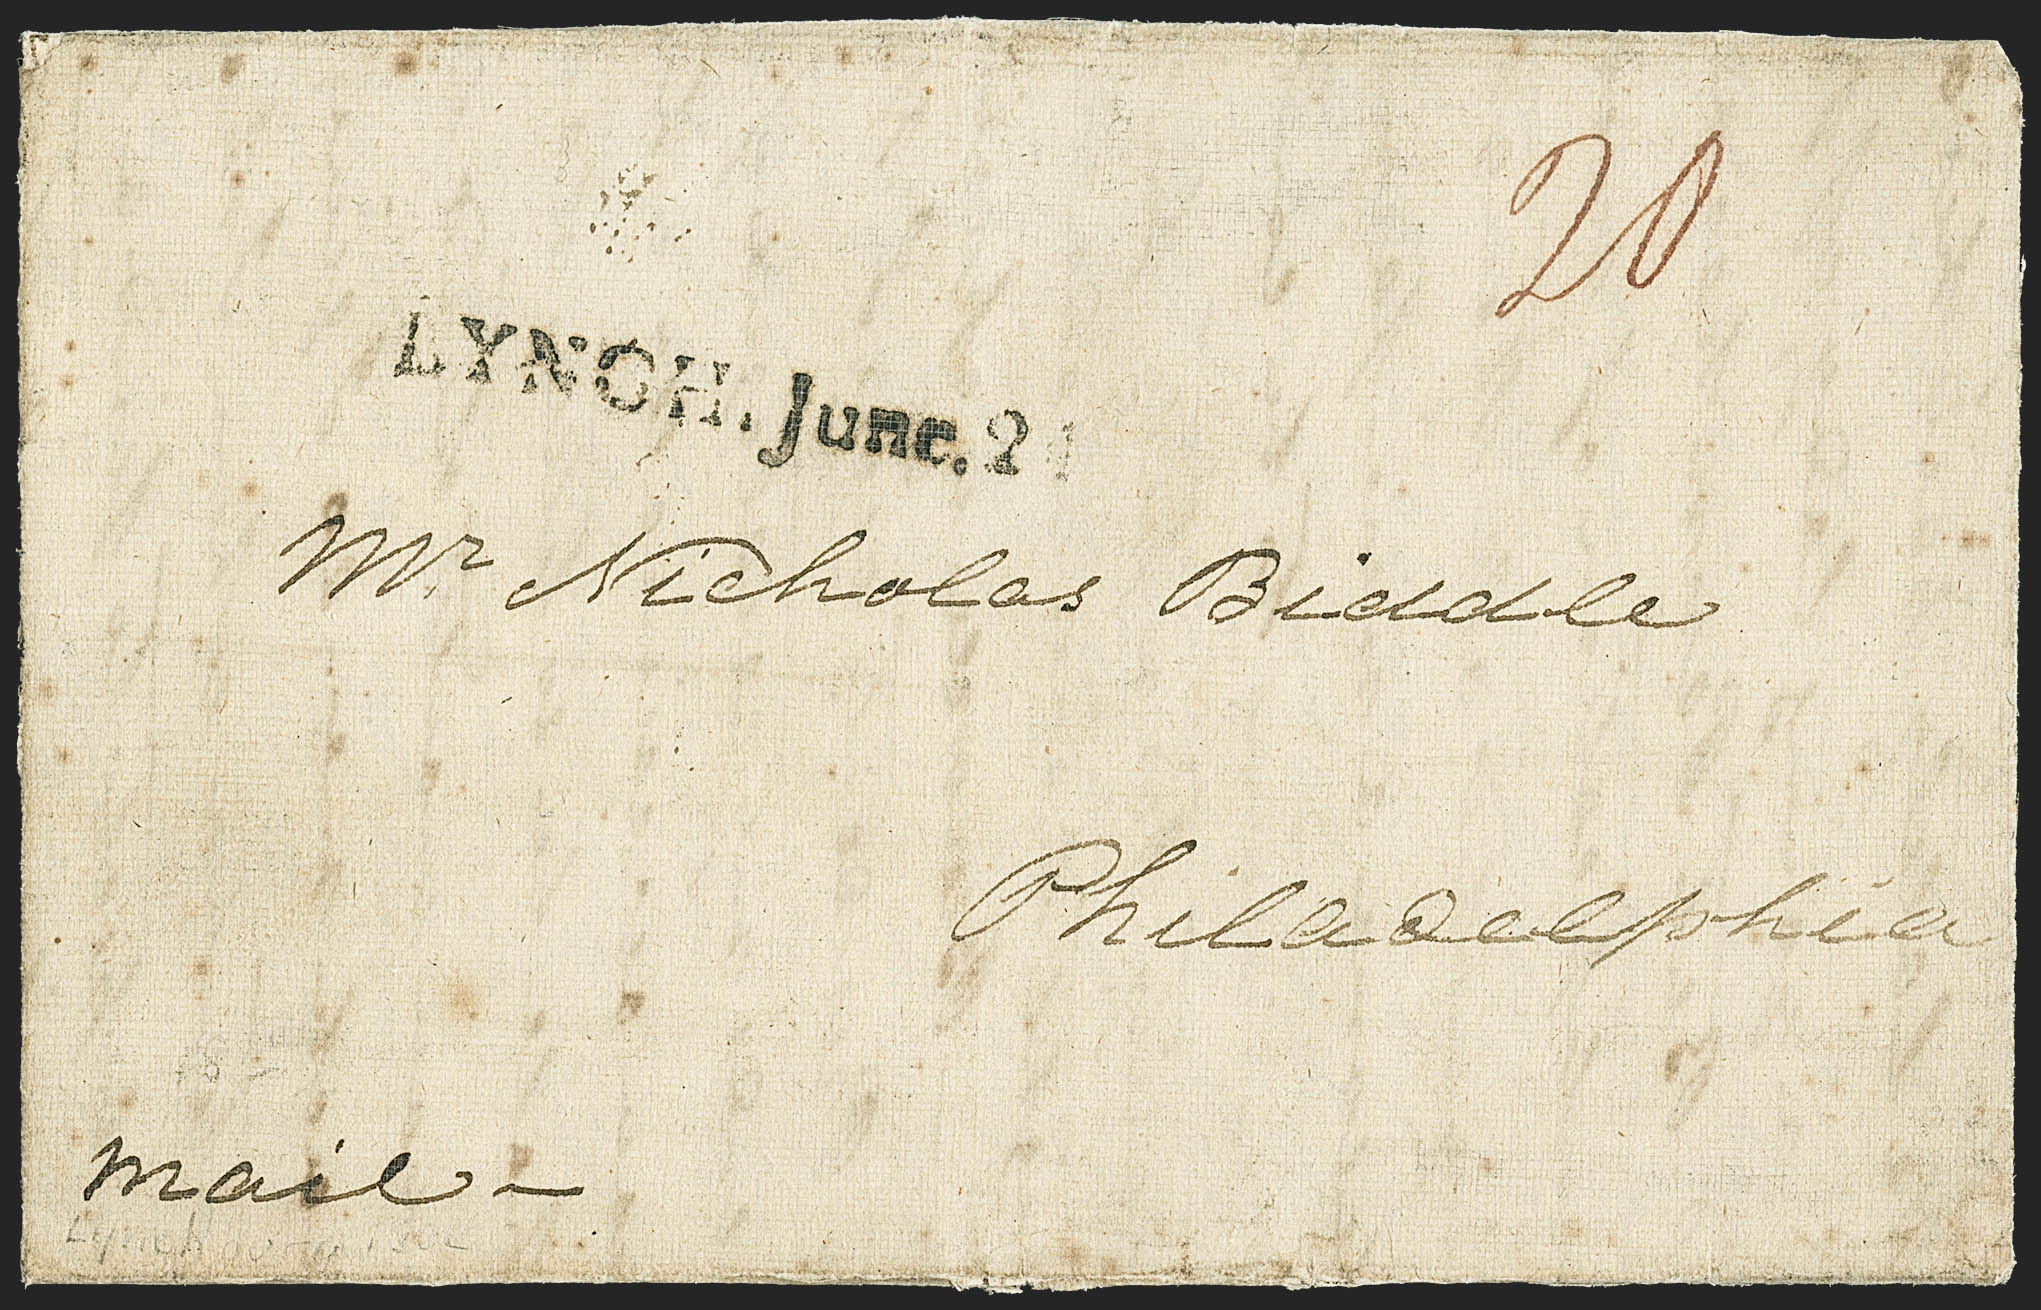 20
LYNCH. June. 21
Mr Nicholas Biddle
Philadelphia
mail –